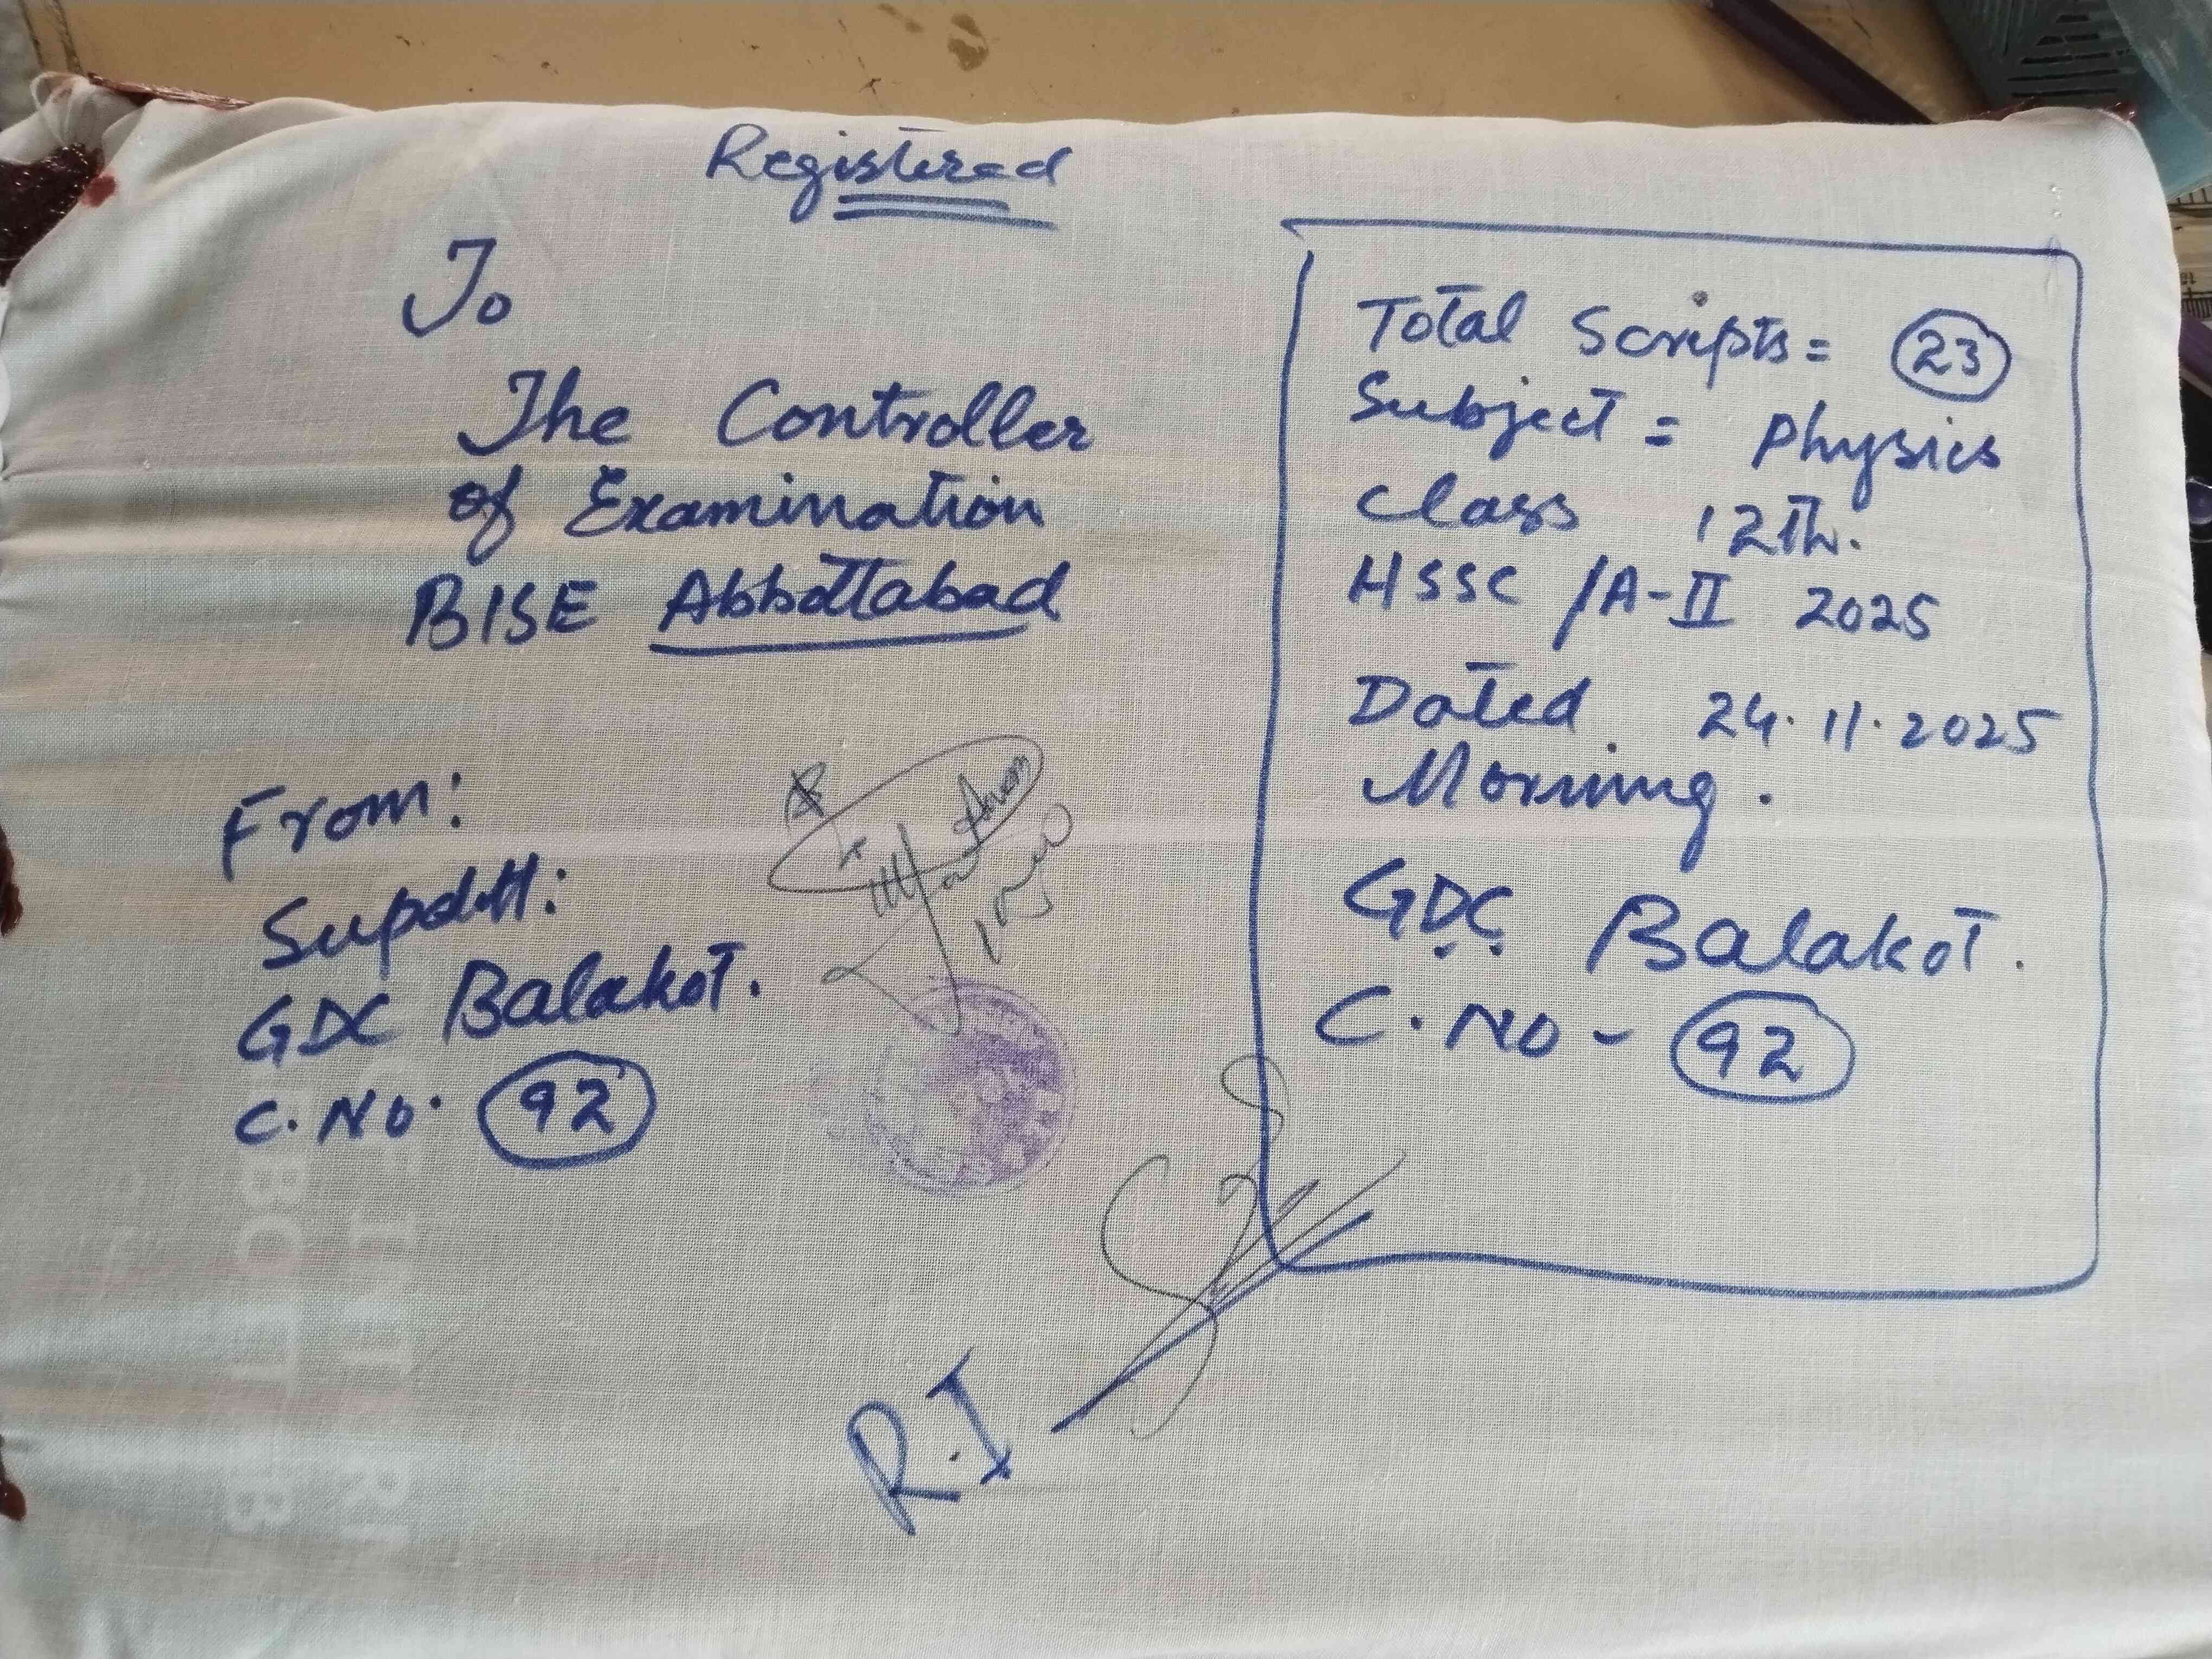 Registered
To
The Controller
of Examination
BISE Abbottabad
From:
Supdtt:
GDC Balakot.
C. No. 92
Total Scripts = 23
Subject = Physics
Class 12th.
HSSC /A-II 2025
Dated 24.11.2025
Morning.
GDC Balakot.
C. No - 92
R.I